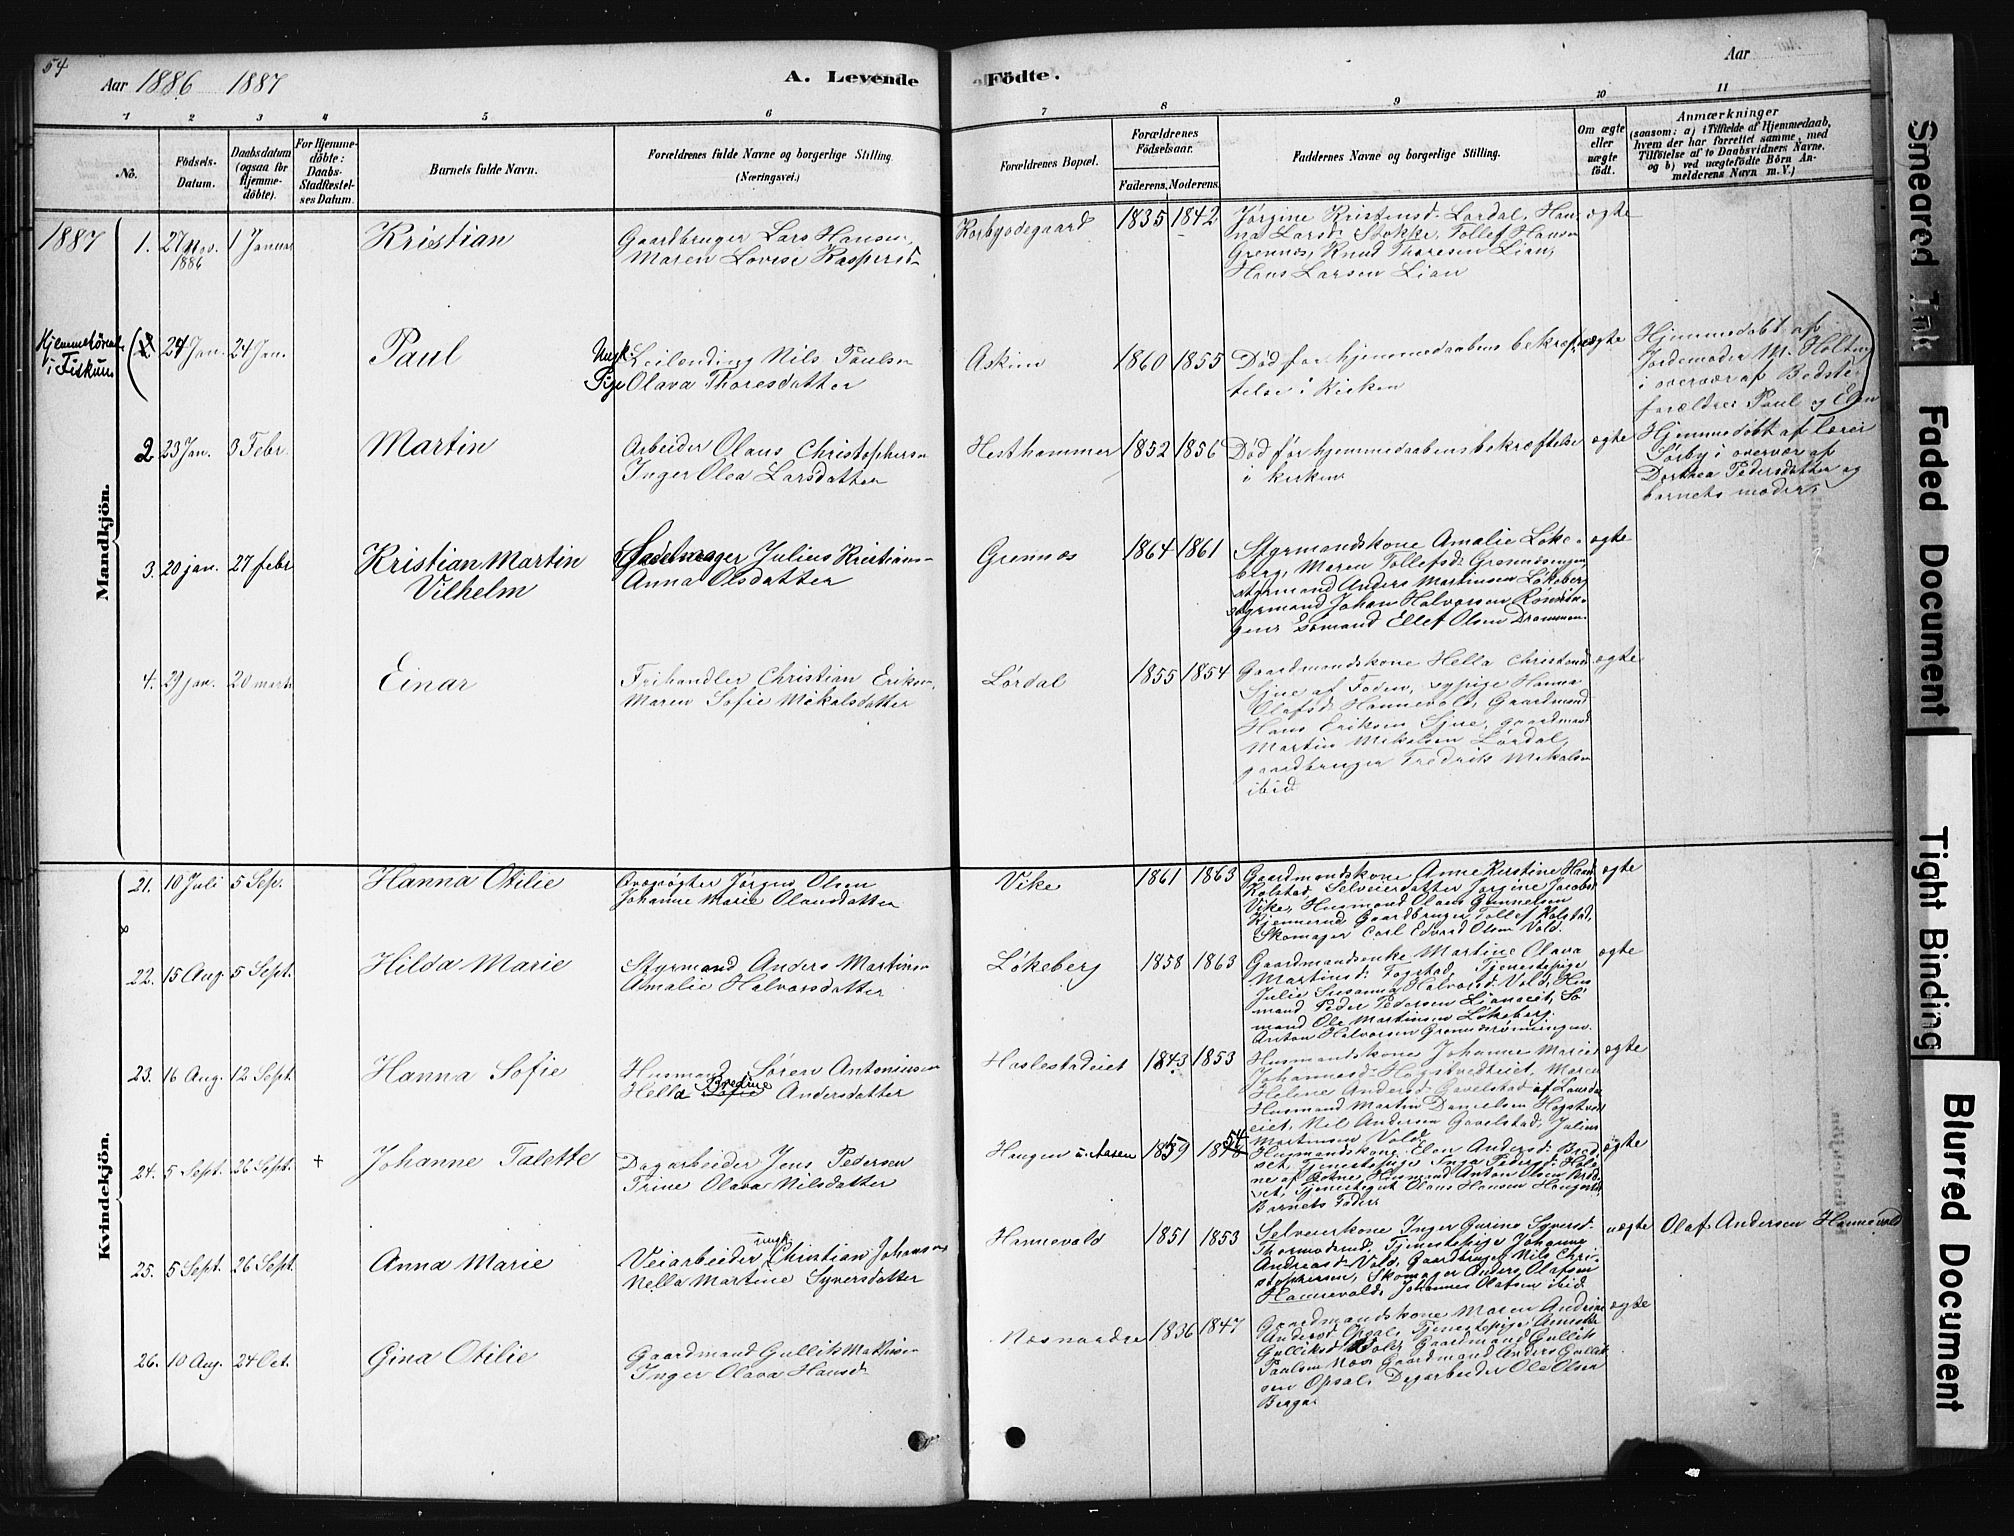 54
Aar 1886 1887
A. Levende
Födte.
Aar
1 2 3 4 5 6 7 8 9 10 11
No.
Födsels-
Datum.
Daabsdatum
(ogsaa for
Hjemme-
döbte).
For Hjemme-
döbte:
Daabs-
Stadfæstel-
ses Datum.
Barnets fulde Navn.
Forældrenes fulde Navne og borgerlige Stilling.
(Næringsvei.)
Forældrenes Bopæl.
Forældrenes
Födselsaar.
Faderens. Moderens.
Faddernes Navne og borgerlige Stilling.
Om ægte
eller
uægte
födt.
Anmærkninger
(saasom: a) i Tilfælde af Hjemmedaab,
hvem der har forrettet samme, med
Tilföielse af to Daabsvidners Navne.
og b) ved uægtefödte Börn An-
melderens Navn m. V.)
Mandkjön.
1887
1. 27 Nov.
1886
1 Januar
Kristian
Gaardbruger Lars Hansen
Maren Lovise Kaspersd
1835 1842
Jørgine Kristensd. Lørdal, Han-
na Larsd. Stokke, Tollef Hansen
Grennes, Knud Thoresen Lian,
Hans Larsen Lian
ægte
Hjemmehörende
i Fiskum
(2 24 Jan. 24 Jan.
Paul
Ungk. Leilending Nils Paulsen
Pige Olava Thoresdatter
Askim
1860 1855
Död før hjemmedaabens bekræf-
telse i Kirken
uægte
Hjemmedöbt af
Jordemoder M. Holten
i overvær af Bedste-
forældre Paul og Elen
2 23 Jan. 3 Febr.
Martin
Arbeider Olaus Christophersen
Inger Olea Larsdatter
Hesthammer
1852 1856
Död før hjemmedaabens bekræftelse
i kirken
ægte
Hjemmedöbt af Lærer
Sørby i overvær af
Dorthea Pedersdatter og
barnets moder
3. 20 jan. 27 febr
Kristian Martin
Vilhelm
Sadelmager Julius Kristians-
Anna Olsdatter
Grennes
1864 1861
Styrmandskone Amalie Løke-
berg, Maren Tollefsd. Grennesningen
styrmand Anders Martinsen Løkeberg
styrmand Johan Halvorsen Rønnin-
gen sömand Ellef Olsen Drammen
ægte
4. 29 jan. 20 marts
Einar
Frihandler Christian Eriksen
Maren Sofie Mikalsdatter
Lørdal
1855 1854
Gaardmandskone Hella Christensd
Sjue af Foden, sypige Hanna
Olafsd. Hannevold, Gaardmand
Hans Eriksen Sjue, gaardmand
Martin Mikalsen Lørdal,
gaardbruger Fredrik Mikalsen
ibid
ægte
Kvindekjön.
21. 10 Juli 5 Sep.
Hanna Otilie
Jørgen Olsen
Johanne Marie Olausdatter
Vike
1861 1863
Gaardmandskone Anne Kirstine Hans
Kolstad Selveierdatter Jørgine Jacobs
Vike, Husmand Olaus Gunnelsen
Kjennerud Gaardbruger Tollef Kolstad,
Skomager Carl Edvard Olsen Vold.
ægte
22. 15 Aug 5 Sept.
Hilda Marie
Styrmand Anders Martinsen
Amalie Halvorsdatter
Løkeberg
1858 1863
Gaardmandsenke Martine Olava
Martinsd. Fogstad, Tjenestepige
Julie Susanna Halvorsd. Vold, Hus-
mand Peder Pedersen Lianeiet, Sö-
mand Ole Martinsen Løkeberg,
Anton Halvorsen Grennesrønningen
ægte
23. 16 Aug. 12 Sept.
Hanna Sofie
Husmand Søren Antoniusen
Hella Sofie Bredine Andersdatter
Haslestadeiet
1843 1853
Husmandskone Johanne Marie
Johannesd. Hogstvedteiet, Maren
Helene Andersd. Gavelstad af Laurdal
Husmand Martin Danielsen Hogstved-
eiet, Nil Andersen Gavelstad, Julius
Martinsen Vold
ægte
24. 5 Sept. 26 Sept. +
Johanne Talette
Dagarbeider Jens Pedersen
Trine Olava Nilsdatter
Haugen u. Aasen
1859 1854
Husmandskone Elen Andersd. Bred-
set, Tjenestepige Inga Pedersd. Hol-
ne af Botne, Husmand Anton Olsen Bred-
set, Tjenestegut Olaus Hansen Haugestad,
Barnets Fader
ægte
25. 5 Sept. 26 Sept.
Anna Marie
Veiarbeider ungk. Christian Johansen
Nella Martine Syversdatter
Hannevold
1851 1853
Selveierkone Inger Gurine Syversd.
Thormodsrud, Tjenestepige Johanne
Andreasd. Vold, Gaardbruger Nils Chri-
stophersen, Skomager Anders Olafsen
Hannevold, Johannes Olafsen ibid
uægte
Olaf Andersen Hannevold
26. 10 Aug. 24 Oct.
Gina Otilie
Gaardmand Gullik Mathisen
Inger Olava Hansd
Næs nordre
1836 1847
Gaardmandskone Maren Andrine
Andersd. Opsal, Tjenestepige Annette
Gulliksd. Gaardmand Gullik
Paulsen Næs Gaardmand Anders Gullik-
sen Opsal, Dagarbeider Ole Olsen
Berga
ægte
Smeared Ink
Faded Document
Tight Binding
Blurred Document